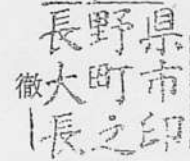 徹
長野県
大町市
長之印